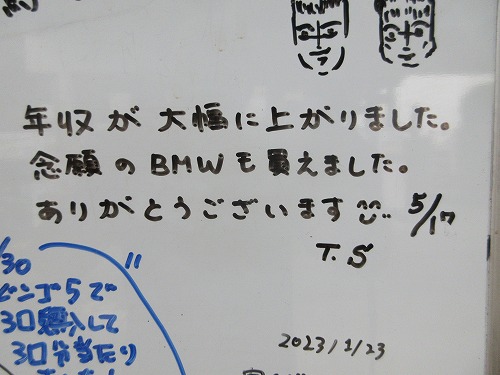 年収が大幅に上がりました。
念願のBMWも買えました。
ありがとうございます 5/17
T.S
/30
ビンゴ5で
3口購入して
3口分当たり
2023/1/23